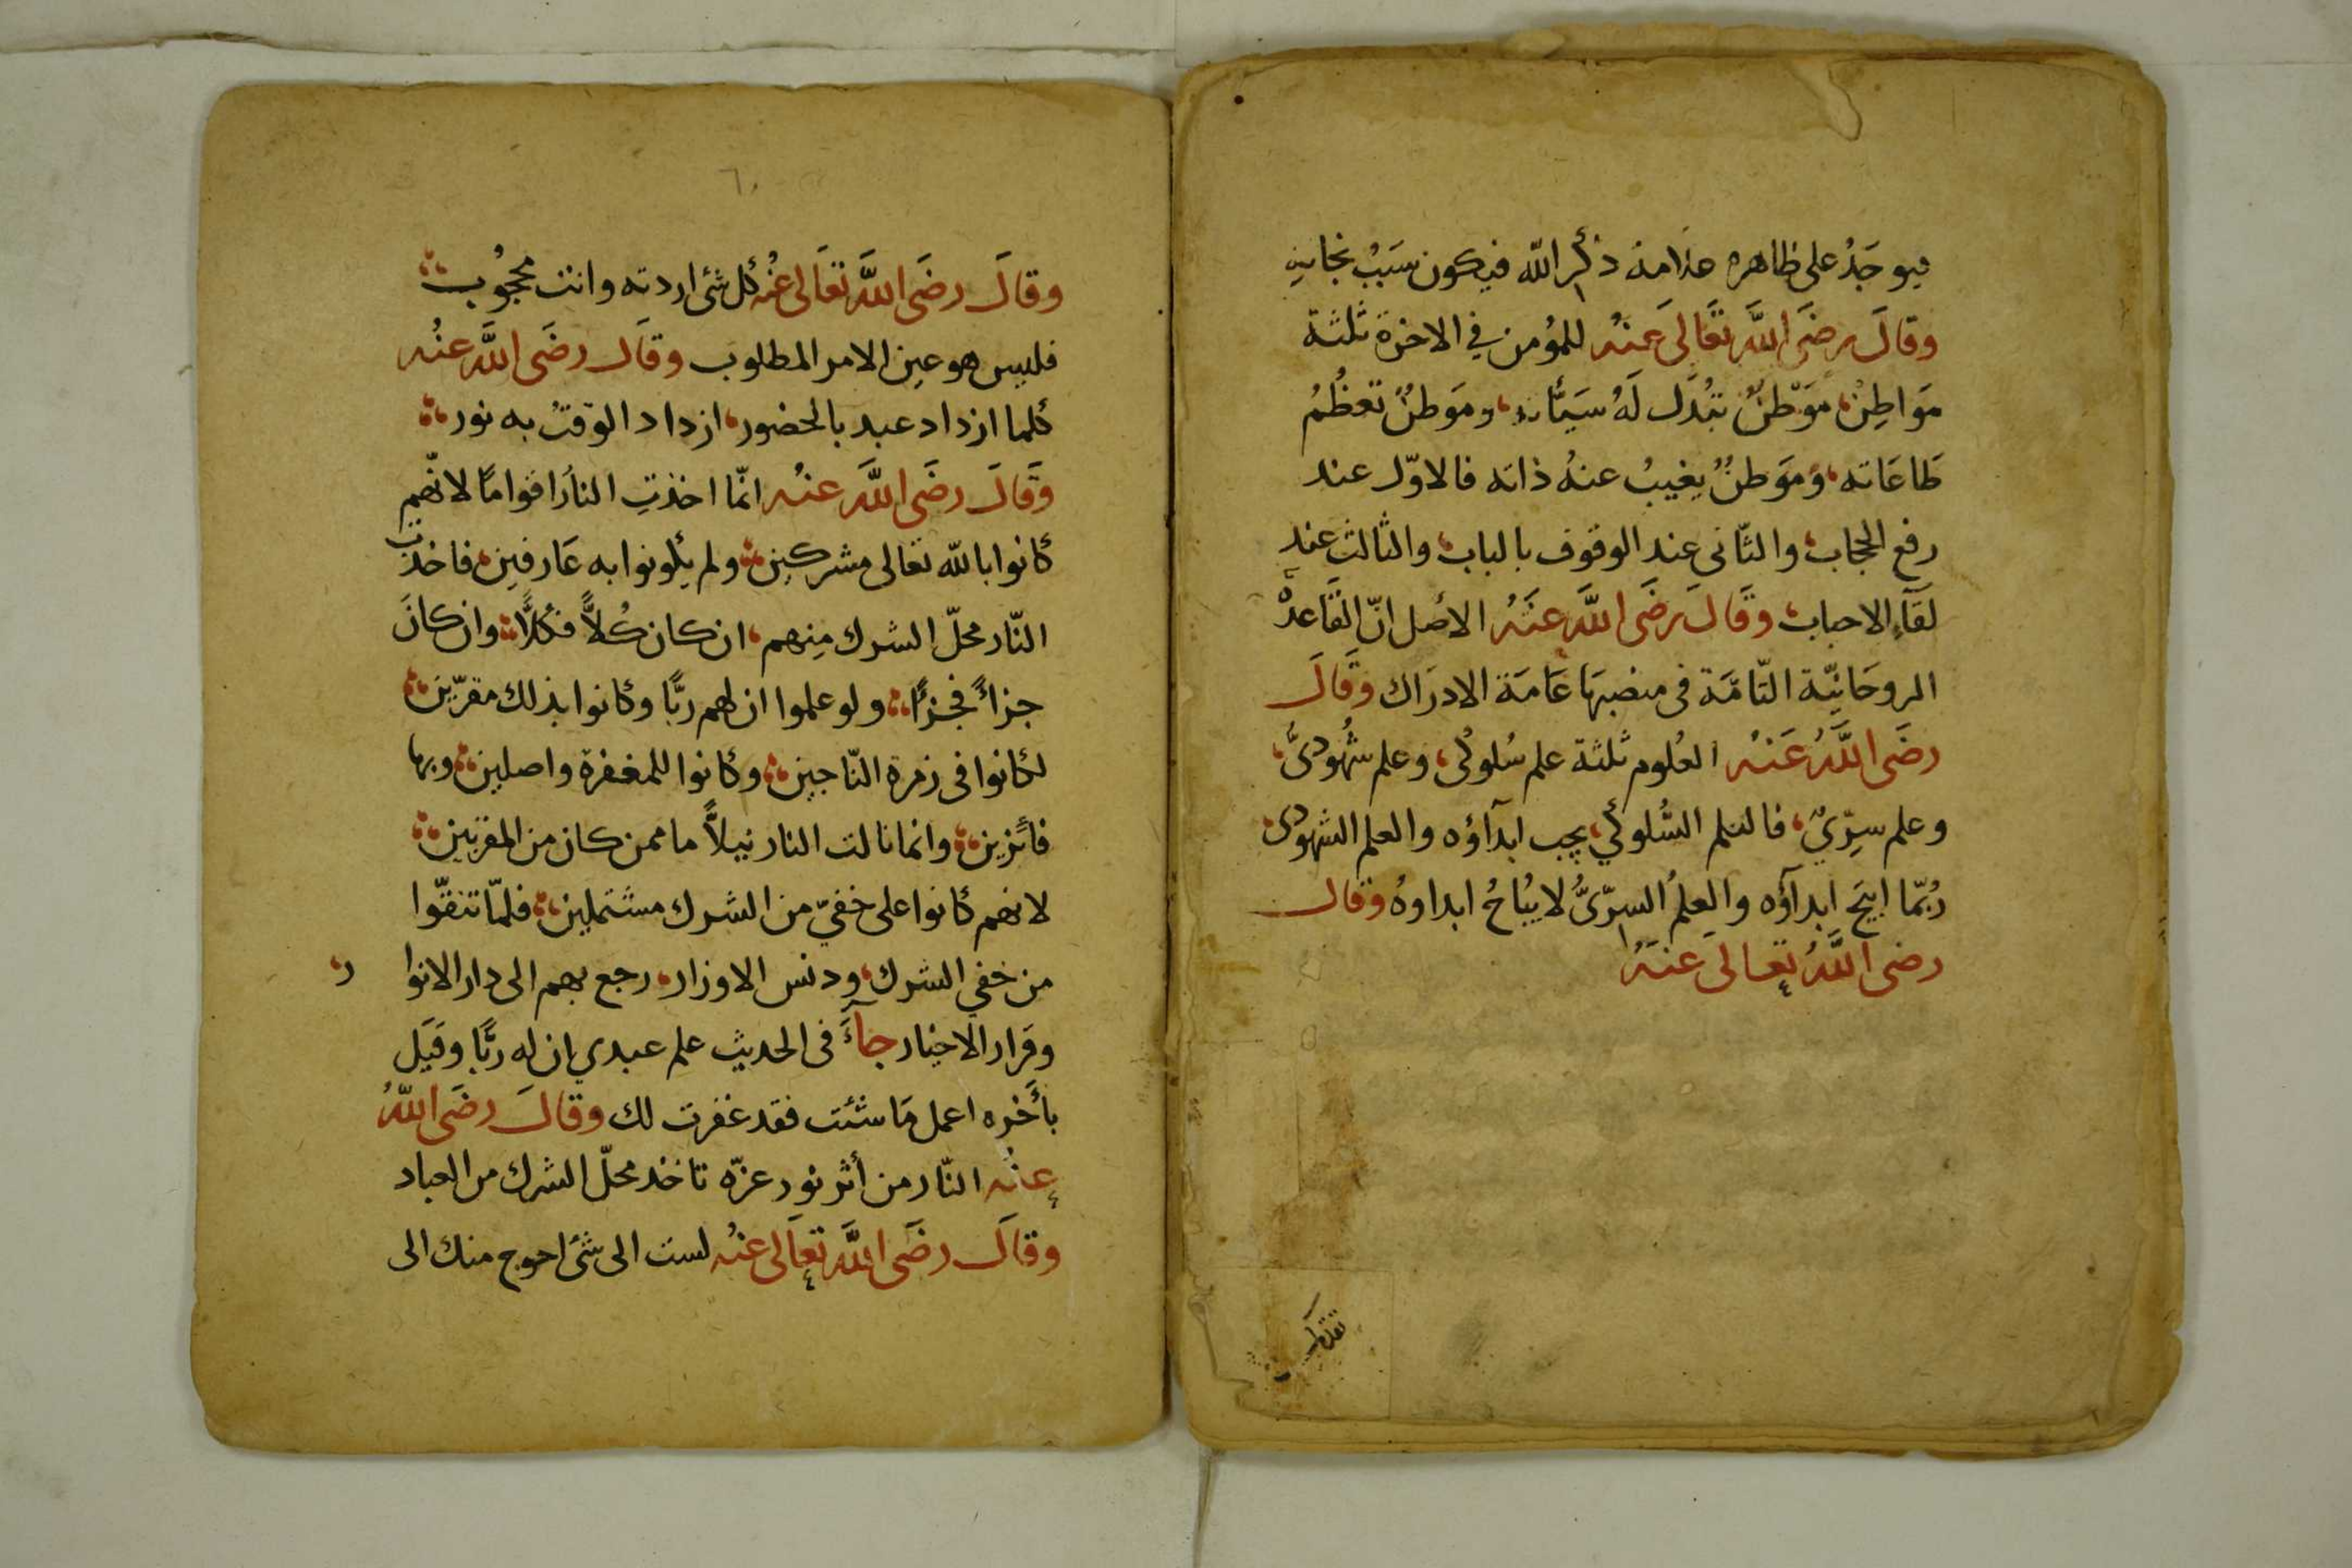 فيوجَدُ على ظاهره علامة ذكر الله فيكون سَبَبُ نجاتِهِ
وقالَ رضَى اللَّه تعَالىَ عَنهُ للمؤمن في الاخرة ثلثة
مَوَاطِنْ، مَوَطنٌ تبُدَّل لَهُ سَيّئاته، ومَوَطنٌ تعظُمُ
طَاعَاته، ومَوَطنٌ يغيبُ عنهُ ذاته فالاوّل عند
رفع الحجاب، والثّانى عند الوقوف بالباب، والثالث عند
لقَآءِ الاحباب، وقَالَ رضَى اللَّه عَنهُ الأصل انّ القَاعدهْ
الروحَانيّة التّامَّة فى منصبهَا عَامَة الادرَاك وقَالَ
رضَى اللَّهُ عَنهُ العُلوم ثلثة علم سُلوكى، وعلم شُهُودىٌّ،
وعلم سِرّيٌ، فالعلم السُّلوكي، يجب ابدآؤه والعلم الشهودى،
رُبمّا ابيَح ابدآؤه والعِلمُ السِرّىُّ لا يبُاحُ ابداوهُ وقال
رضى اللَّهُ تعالىَ عنهُ
٦٠
وقالَ رضَى اللَّه تعَالى عَنْهُ كُل شئ اردته وانت محجُوب
فليس هو عين الامر المطلوب وقالَ رضَى اللَّه عنُه
كلما ازداد عبد بالحضور، ازداد الوَقتُ به نور
وقَالَ رضَى اللَّه عنهُ انمّا اخذتِ النارُ اقوامًا لانهّم
كانوا بالله تعالى مشركين، ولم يكونوا به عَارفين، فاخذت
النّار محلّ الشرك مِنهم، ان كان كُلاًّ فكُلاًّ، وان كانَ
جزاءً فجزءًا، ولو علموا ان لهم ربًّا وكانوا بذلك مقرّين
لكانوا فى زمرة النّاجين، وكانوا للمغفرة واصلين، وبها
فائزين، وانما نالت النار نيلاً ما ممن كان من المقربين
لانهم كانوا على خفيّ من الشرك مشتملين، فلمّا تنقّوا
من خفي الشرك، ودنس الاوزار، رجع بهم الى دار الانوا ر،
وقرار الاخيار جآءَ فى الحديث علم عبدي ان له ربًّا وقيَل
بأخره اعمل مَا شئت فقد غفرت لك وقالَ رضَى اللهُ
عنهُ النّار من أثر نور عزّه تاخذ محلّ الشرك من العباد
وقالَ رضَى اللَّه تعَالى عنهُ لست الى شئ احوج منك الى